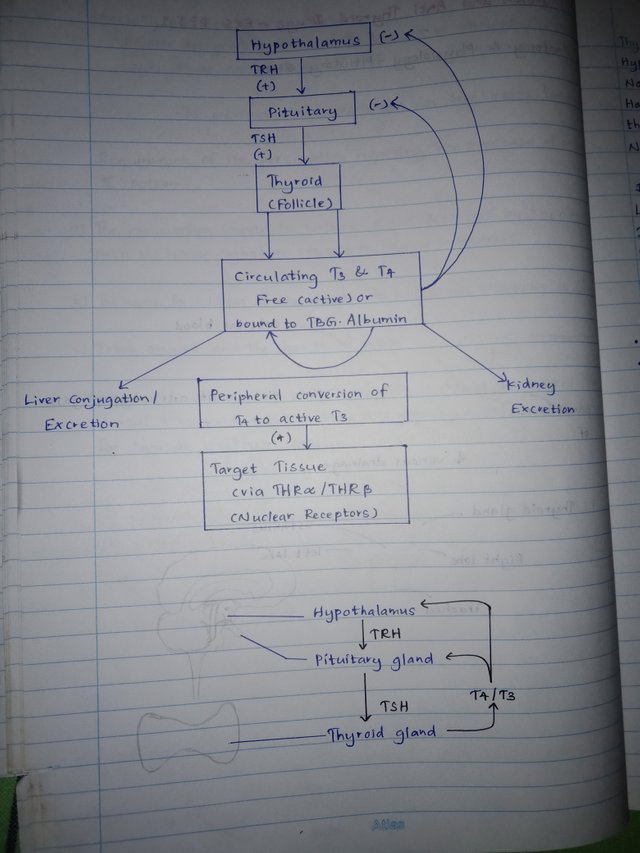 Hypothalamus (-)
TRH
(+)
Pituitary (-)
TSH
(+)
Thyroid
(Follicle)
Circulating T3 & T4
Free (active) or
bound to TBG. Albumin
Liver Conjugation/
Excretion
Kidney
Excretion
Peripheral conversion of
T4 to active T3
(+)
Target Tissue
(via THRα/THRβ
(Nuclear Receptors)
Hypothalamus
TRH
Pituitary gland
T4/T3
TSH
Thyroid gland
Atlas